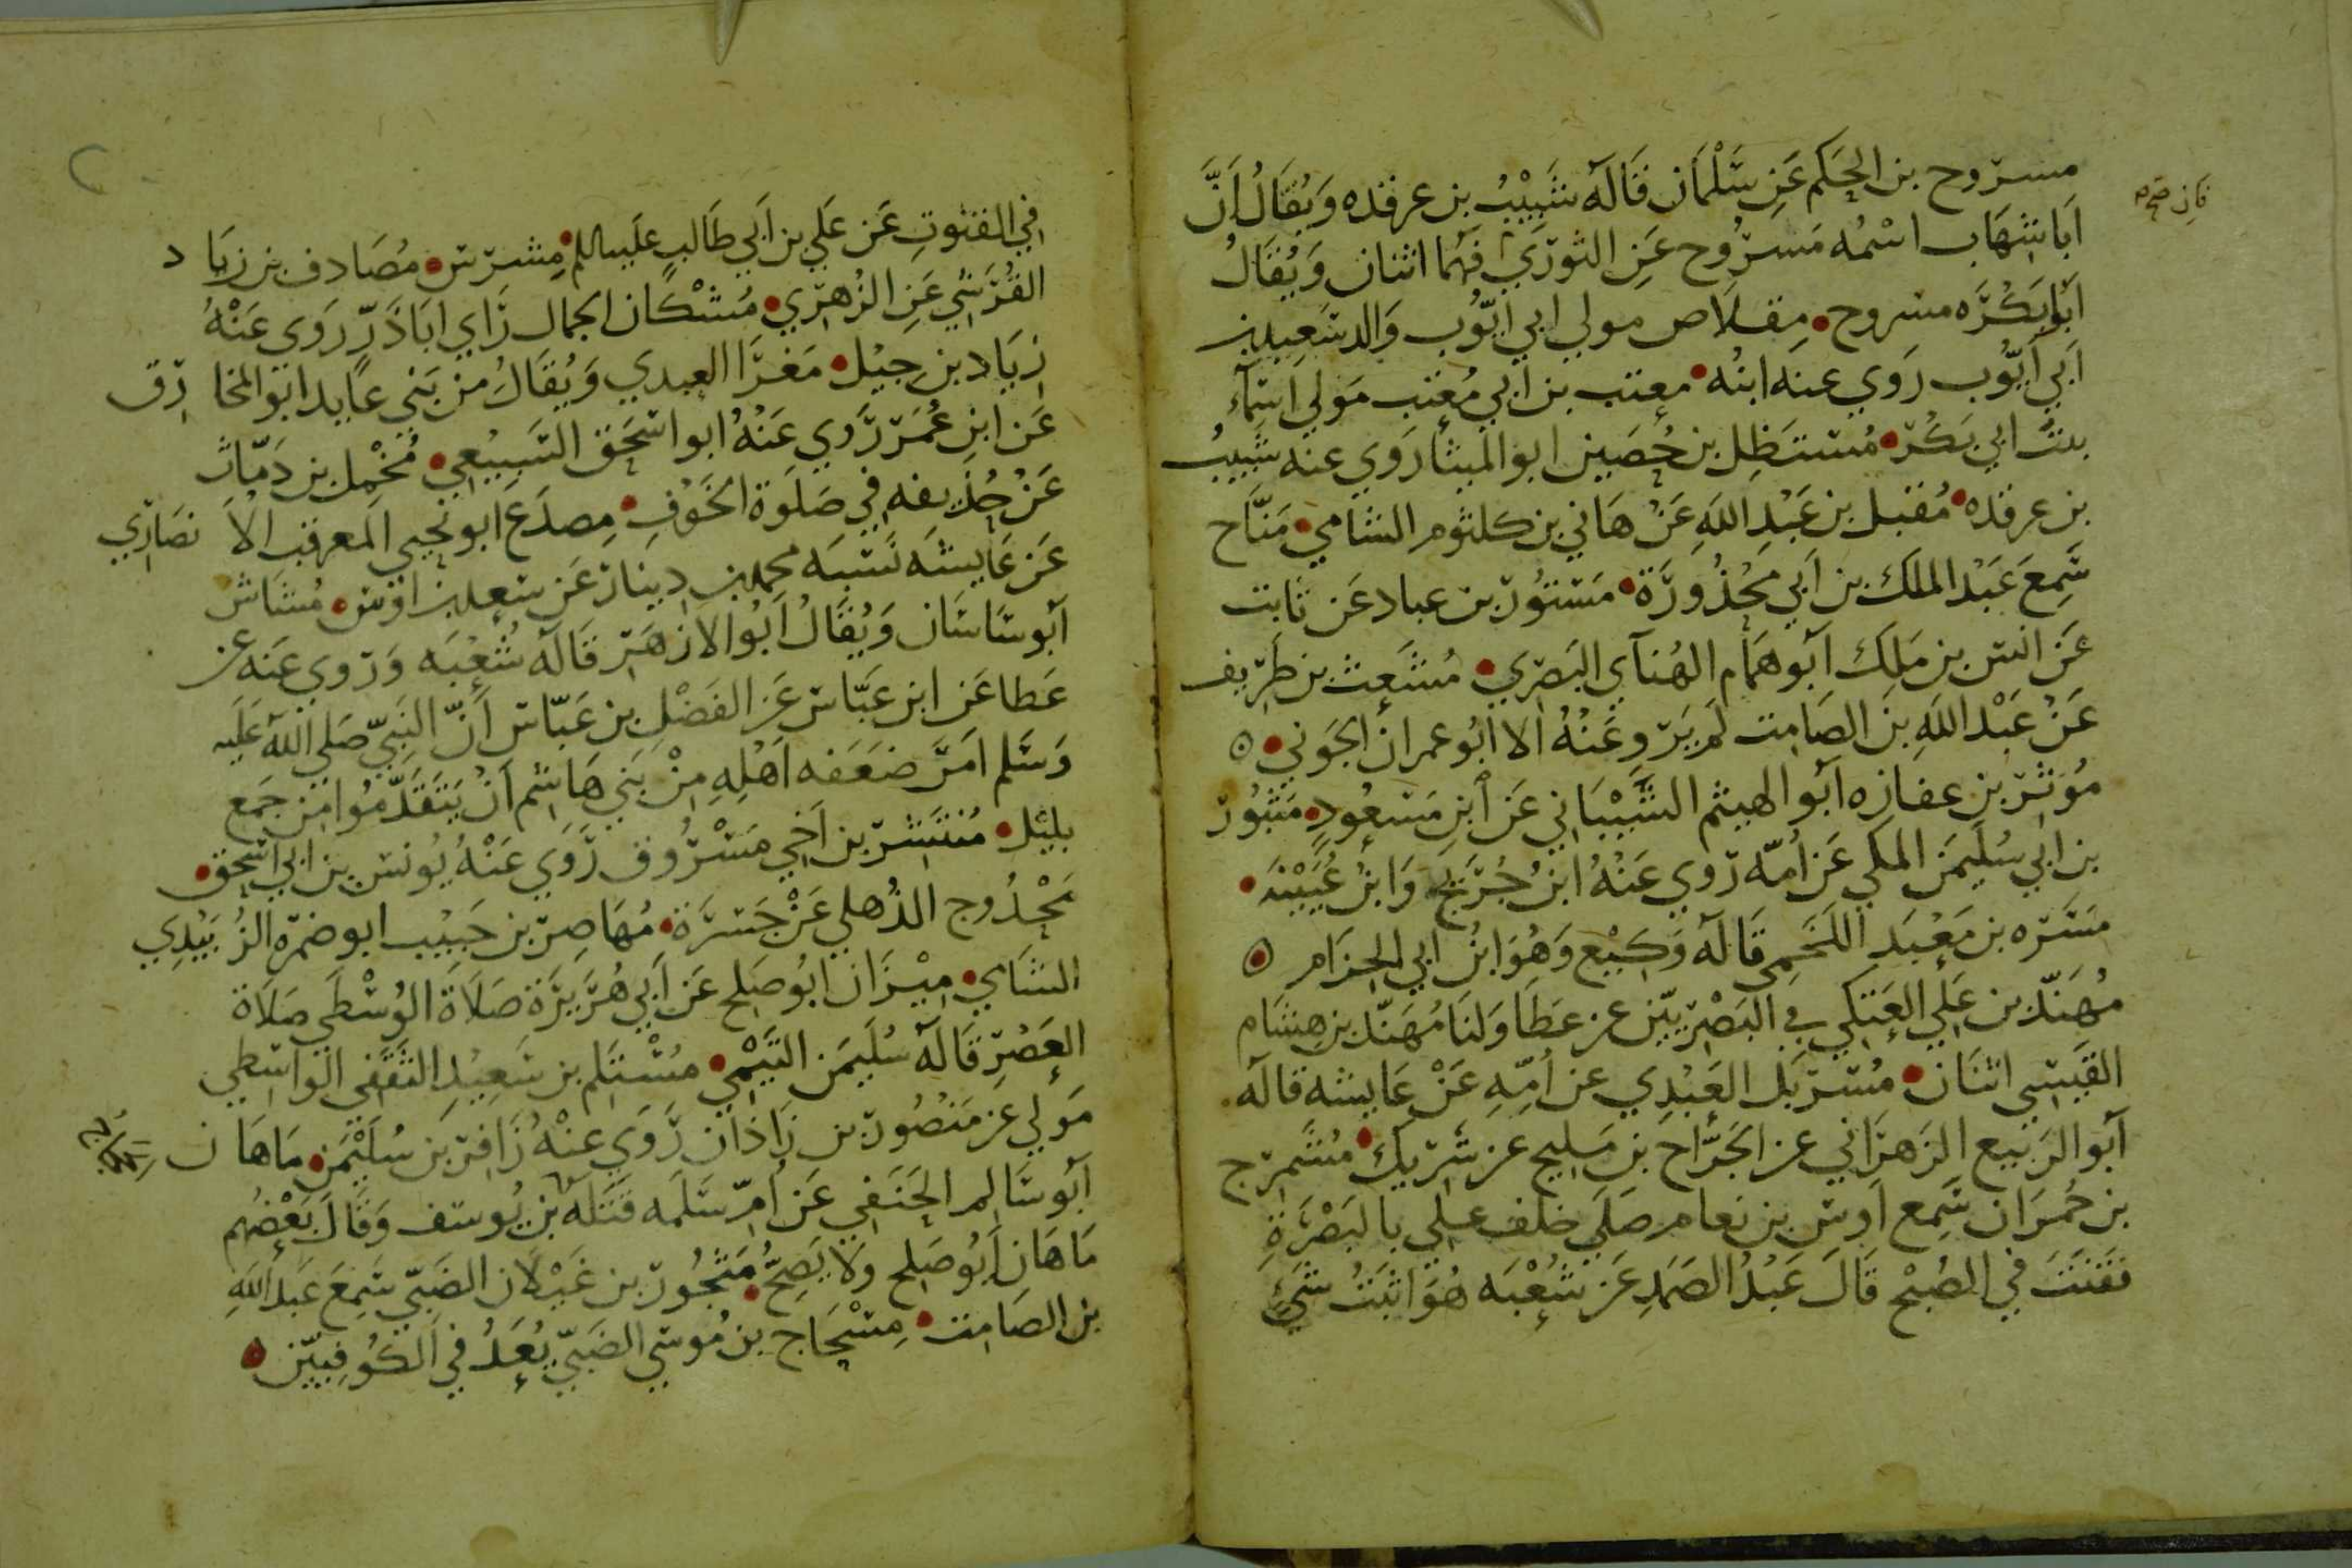 مسروح بن الحكم عَن سَلْمَان قَالَه شَبِيْبُ بن عرقده وَيُقَالُ اَنَّ
اَبَا شِهَاب اسْمُه مَسرُوح عَنِ الثورِي فهُما اثنان وَيُقَالُ
اَبُو بَكْرَه مسروح مِقلَاص مولي ابي ايّوُب وَالد سَعِيد بن
اَبِي اَيّوُب رَوي عنه ابنُه معتب بن ابي مُعتب مَولي اَسمآء
بنتُ ابي بَكْر مُستَظِل بن حُصَين ابو الميثا رَوي عنه شَبيبُ
بن عرقده مُقبل بن عَبْدِ اللَهِ عَنْ هَاني بن كلثوم الشامي مَنَّاح
سَمِعَ عَبْد الملك بن اَبي مَحْذُورَة مَستُورُ بن عباد عَن ثابت
عَن انس بن مَلِك اَبو همَام الهُنَآي البَصرِي مُشَعِث بن طَرِيف
عَنْ عَبْد اللَهِ بن الصَامِت لَم يَروِ عَنْهُ الا ابُو عمران الجَوني
مُوثِر بن عفازه اَبو الهيثم الشَيْبَاني عَن ابنِ مَسعُودٍ مَنبُور
بن ابي سُلَيمَن المكي عَن اُمّه رَوي عَنْهُ ابنُ جُرَيج وَابنُ عُيَيْنَه
مَسَرَه بن مَعْبَد اللَخمِي قَالَه وَكِيْع وَهُوَ ابنُ ابي الحزام
مُهَنّد بن عَلي العَتَكي في البَصْرِيّين عن عَطَا وَلنَا مُهَنّد بن هِشَام
القَيسِي اثنَان مُسَربَل العَبْدِي عن اُمِّهِ عَنْ عَايشه قاله
اَبو الرَبيع الزَهرَاني عن الجَرَّاح بن مَليح عن شَرِيك مُشمرج
بن حُمرَان سَمِع اَوس بن نعام صَلَي خلف علي بالبَصْرَةِ
فقَنَتَ في الصُبْح قَالَ عَبْدُ الصَمَدِ عَن شُعْبَه هُوَ اثبَتُ شَيْءٍ
في القنُوتِ عَن عَلي بن اَبي طَالبٍ عليه السلم مِشرَس مُصَادف بن زيَاد
القُرَشي عَنِ الزُهرِي مُشْكَان الجمال رَاي ابَا ذَرّ رَوي عَنْهُ
زيَاد بن جِيْل مَغرَا العبدي وَيُقَالُ من بَني عَايد ابو المخارق
عَن ابن عُمَر رَوي عَنْهُ ابو اسحَق السَبيْعي مُخْمِل بن دَمّاث
عَنْ حُذَيفه في صَلوَة الخَوفِ مِصدَع ابو نجيي المعرقب الانصَارِي
عَن عَايشَه نَسَبه محمد بن دينار عَن سَعد بن اَوس مُشَاش
اَبو سَاسَان وَيُقَالُ اَبُو الازهَر قَالَه شُعْبَه وَرَوي عَنه عن
عَطا عَن ابن عَبَّاس عَن الفَضْلِ بن عَبّاس اَنّ النَبِيّ صَلي الله عَلَيه
وَسَلم امَر ضَعَفه اَهلِهِ مِنْ بَني هَاشم اَنْ يَتَقَدّموُا مِن جَمع
بليْل مُنتَشر بن اَخي مَسْرُوق رَوَي عَنْهُ يُونس بن ابي اسحق
مَحْدُوج الذُهلي عَنْ جَسرَة مُهَاصِر بن حَبيْب ابو ضمره الزُبَيْدِي
الشَاي مِيْزَان ابُو صَلِح عَن اَبي هُرَيرَة صَلَاةَ الوُسْطَي صَلَاة
العَصْرِ قَالَه سُلَيمَن التَيْمِي مُسْتَلم بن سَعِيْدٍ الثَقَفي الواسطي
مَولي عن مَنصُور بن زَاذَان رَوَي عنْهُ زَافِر بن سُلَيْمَن مَاهَان
اَبو سَالم الحَنَفِي عَن اُمّ سَلَمه قتَلَه بن يُوسف وَقَالَ بَعْضُهم
مَاهَان اَبُو صَلِح وَلَا يَصِحُّ مَثجُور بن غَيْلَان الضَبّي سَمِعَ عَبد اللَهِ
بن الصَامِت مِسْحَاج بن مُوسَي الضَبّي يُعَدُ في الكوُفِيّين